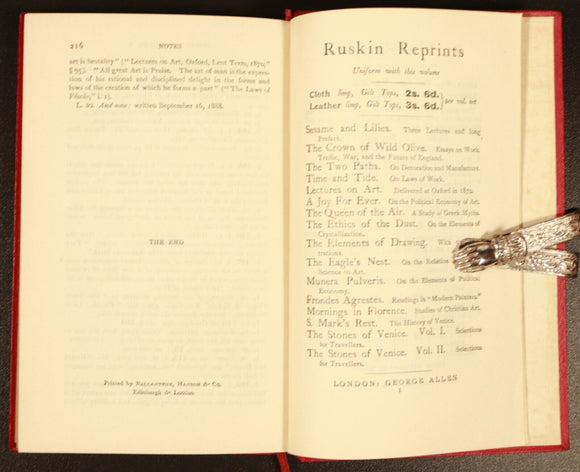 216 NOTES
art is bestiality" ("Lectures on Art, Oxford, Lent Term, 1870,"
§ 95). "All great Art is Praise. The art of man is the expres-
sion of his rational and disciplined delight in the forms and
laws of the creation of which he forms a part" ("The Laws of
Fésole," i. 1).
L. 20. And now: written September 16, 1888.
THE END
Printed by BALLANTYNE, HANSON & Co.
Edinburgh & London
Ruskin Reprints
Uniform with this volume
Cloth limp, Gilt Tops, 2s. 6d.
Leather limp, Gilt Tops, 3s. 6d.
per vol. net
Sesame and Lilies. Three Lectures and long
Preface.
The Crown of Wild Olive. Essays on Work,
Traffic, War, and the Future of England.
The Two Paths. On Decoration and Manufacture.
Time and Tide. On Laws of Work.
Lectures on Art. Delivered at Oxford in 1870.
A Joy For Ever. On the Political Economy of Art.
The Queen of the Air. A Study of Greek Myths.
The Ethics of the Dust. On the Elements of
Crystallization.
The Elements of Drawing. With
trations.
The Eagle's Nest. On the Relation
Science to Art.
Munera Pulveris. On the Elements of Political
Economy.
Frondes Agrestes. Readings in "Modern Painters."
Mornings in Florence. Studies of Christian Art.
S. Mark's Rest. The History of Venice.
The Stones of Venice. Vol. I. Selections
for Travellers.
The Stones of Venice. Vol. II. Selections
for Travellers.
LONDON: GEORGE ALLEN
1